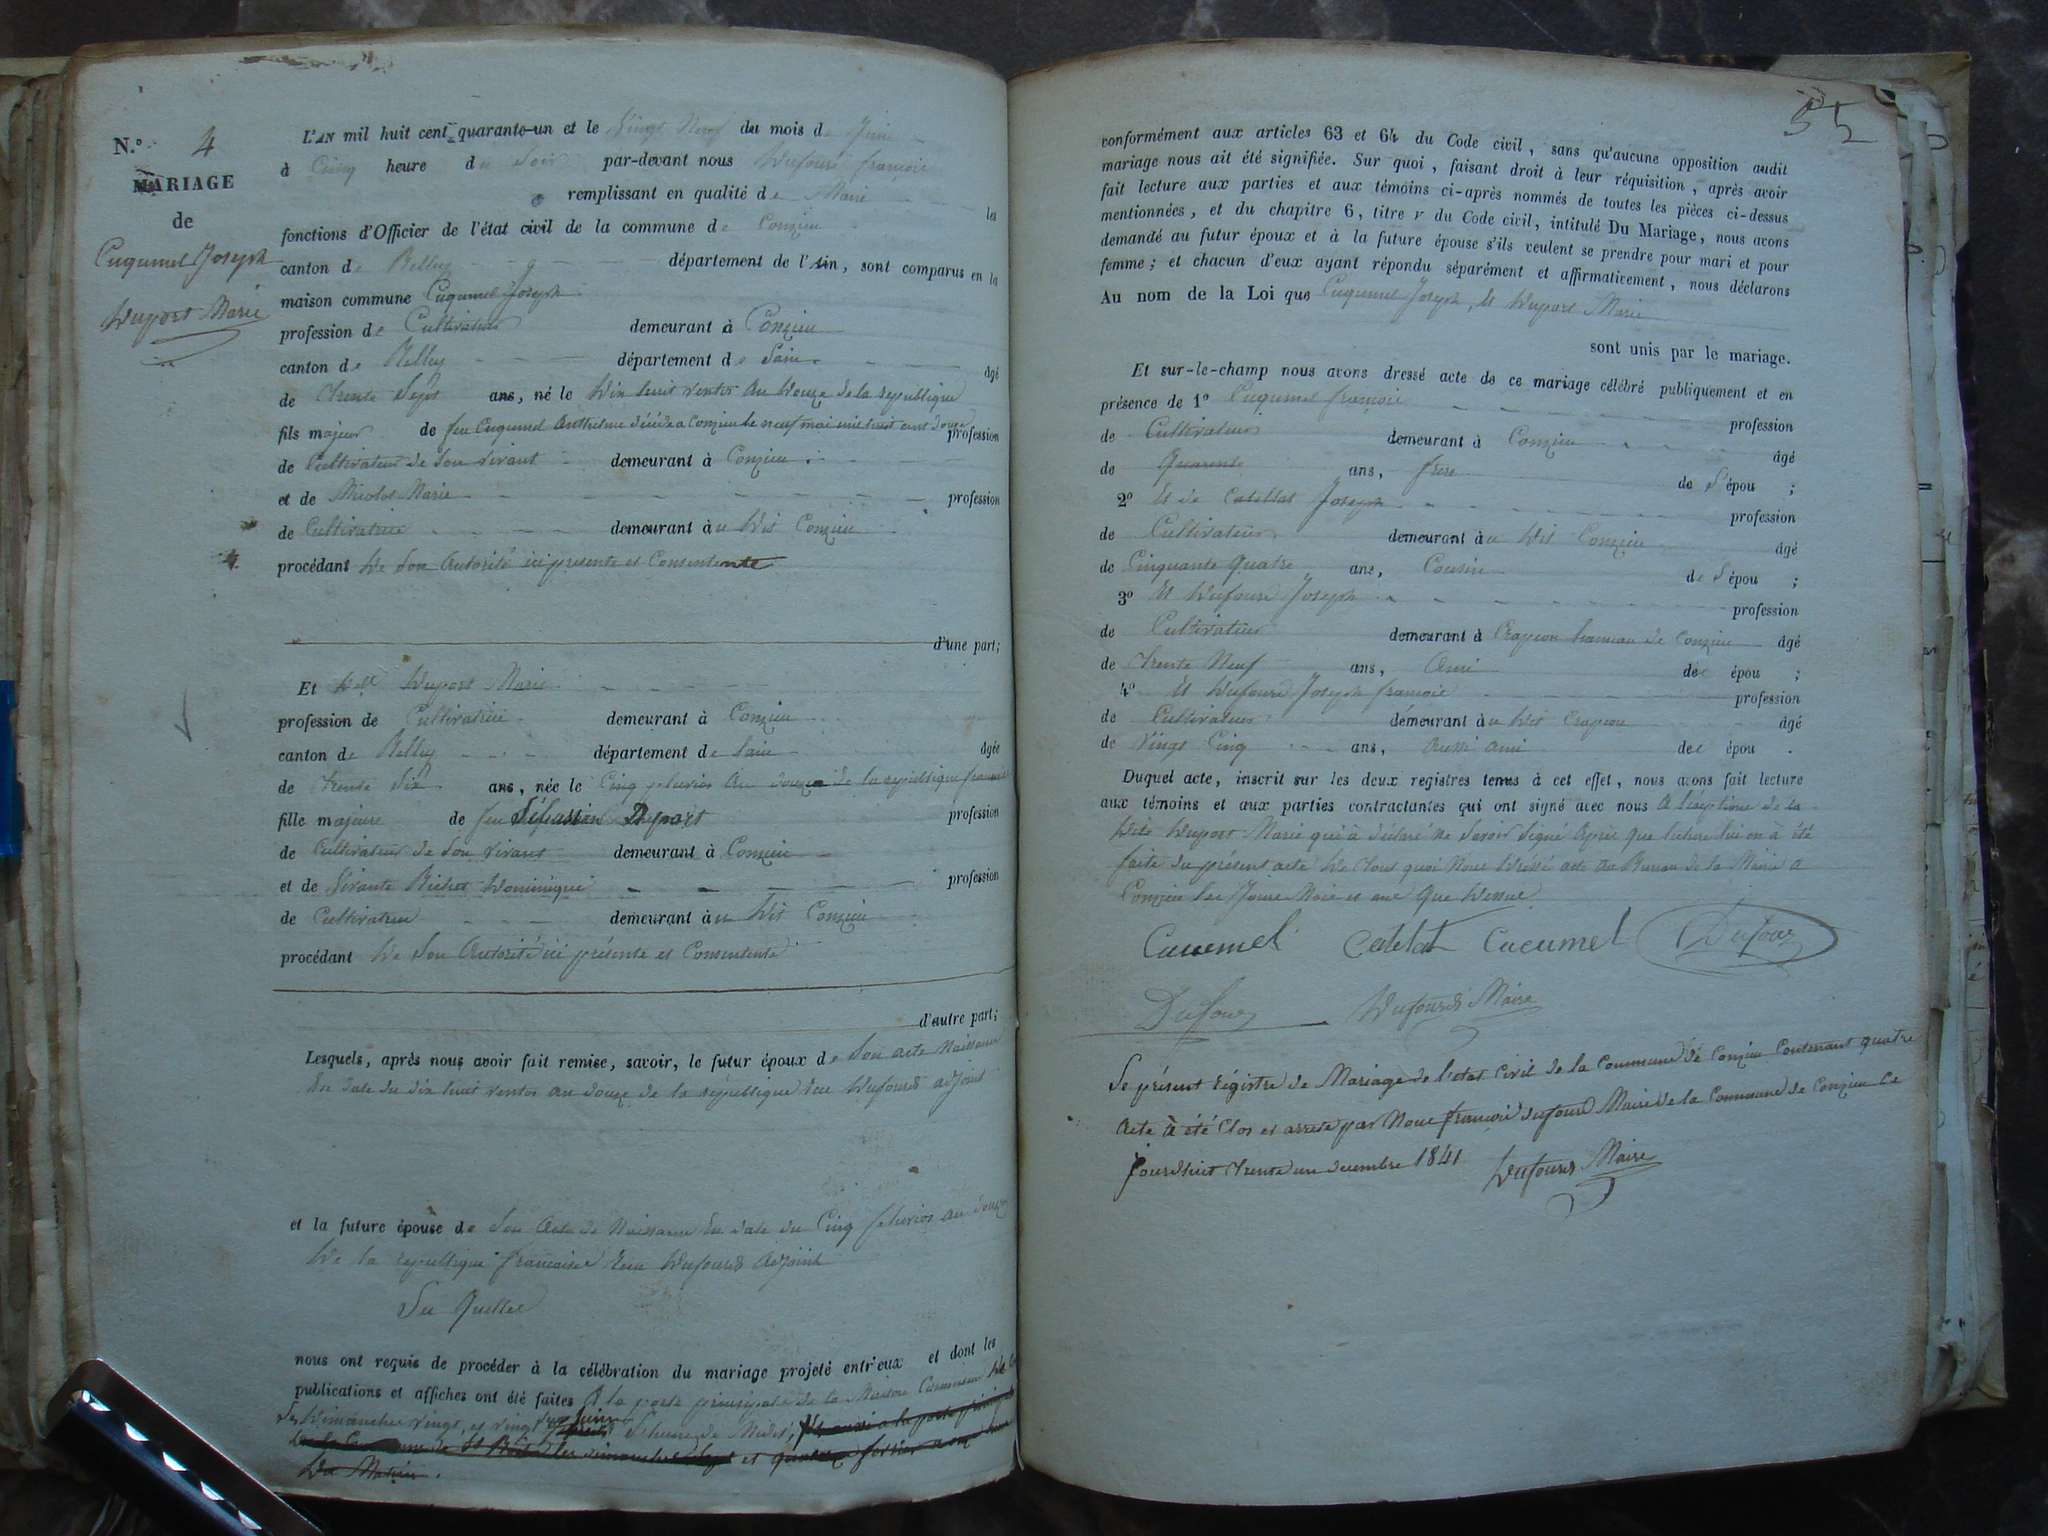 N.° 4
MARIAGE
de
Cuqumel Joseph
Duport Marie
L'AN mil huit cent quarante-un et le Vingt Neuf du mois de Juin
à Cinq heure du Soir par-devant nous Dufourd francois
remplissant en qualité de Maire les
fonctions d'Officier de l'état civil de la commune de Conzieu
canton de Belley département de l'Ain, sont comparus en la
maison commune Cuqumel Joseph
profession de Cultivateur demeurant à Conzieu
canton de Belley département de Lain âgé
de trente Sept ans, né le Dix huit ventos An Douze de la republique
fils majeur de feu Cuqumel Anthelme décédé a Conzieu le neuf mai mil huit cent douze profession
de Cultivateur de Son vivant demeurant à Conzieu
et de Nicolot Marie profession
de Cultivatrice demeurant àu Dit Conzieu
procédant De Son Autorité ici presente et Consentente
d'une part;
Et Dlle Duport Marie
profession de Cultivatrice demeurant à Conzieu
canton de Belley département de Lain âgée
de trente Six ans, née le Cinq pluvios An douze de la republique francaise
fille majeure de feu Sébastien Duport profession
de Cultivateur de Son vivant demeurant à Conzieu
et de vivante Dominique profession
de Cultivatrice demeurant àu Dit Conzieu
procédant De Son Autorité ici présente et Consentente
d'autre part;
Lesquels, après nous avoir fait remise, savoir, le futur époux de Son acte Naissance
En date du dix huit ventos an douze de la république Dufourd adjoint
et la future épouse de Son Acte de Naissance En date du Cinq pluvios an douze
De la republique francaise Dufourd adjoint
nous ont requis de procéder à la célébration du mariage projeté entr'eux et dont les
publications et affiches ont été faites A la porte principale de la Maison Commune
les Dimanches vingt, et vingt Juin heure de Midi,
Du Matin.
55
conformément aux articles 63 et 64 du Code civil, sans qu'aucune opposition audit
mariage nous ait été signifiée. Sur quoi, faisant droit à leur réquisition, après avoir
fait lecture aux parties et aux témoins ci-après nommés de toutes les pièces ci-dessus
mentionnées, et du chapitre 6, titre v du Code civil, intitulé Du Mariage, nous avons
demandé au futur époux et à la future épouse s'ils veulent se prendre pour mari et pour
femme; et chacun d'eux ayant répondu séparément et affirmativement, nous déclarons
Au nom de la Loi que Cuqumel Joseph, Et Duport Marie
sont unis par le mariage.
Et sur-le-champ nous avons dressé acte de ce mariage célébré publiquement et en
présence de 1° Cuqumel francois profession
de Cultivateur demeurant à Conzieu âgé
de Quarente ans, frère de L'épou ;
2° Et de Catellat Joseph profession
de Cultivateur demeurant àu Dit Conzieu âgé
de Cinquante Quatre ans, Cousin de L'épou ;
3° Et Dufourd Joseph profession
de Cultivateur demeurant à Crapeou hameau de Conzieu âgé
de trente Neuf ans, Ami de épou ;
4° Et Dufourd Joseph francois profession
de Cultivateur demeurant àu Dit Crapeou âgé
de Vingt Cinq ans, Aussi ami de épou .
Duquel acte, inscrit sur les deux registres tenus à cet effet, nous avons fait lecture
aux témoins et aux parties contractantes qui ont signé avec nous A L'éxeption de la
Dite Duport Marie qui à Déclaré ne Savoir Signé Après que lecture lui en à été
faite du présent acte De tous quoi Nous dréssé acte au Bureau de la Mairie a
Conzieu Les Jours Mois et ans Que Dessus
Cucumel Catelat Cucumel Dufour
Dufour Dufourd Maire
Le présent régistre de Mariage de l'etat Civil de la Commune de Conzieu Contenant quatre
Acte à été Clos et arrété par Nous francois dufourd Maire de la Commune de Conzieu Ce
Jourdhuit trente un decembre 1841 Dufourd Maire